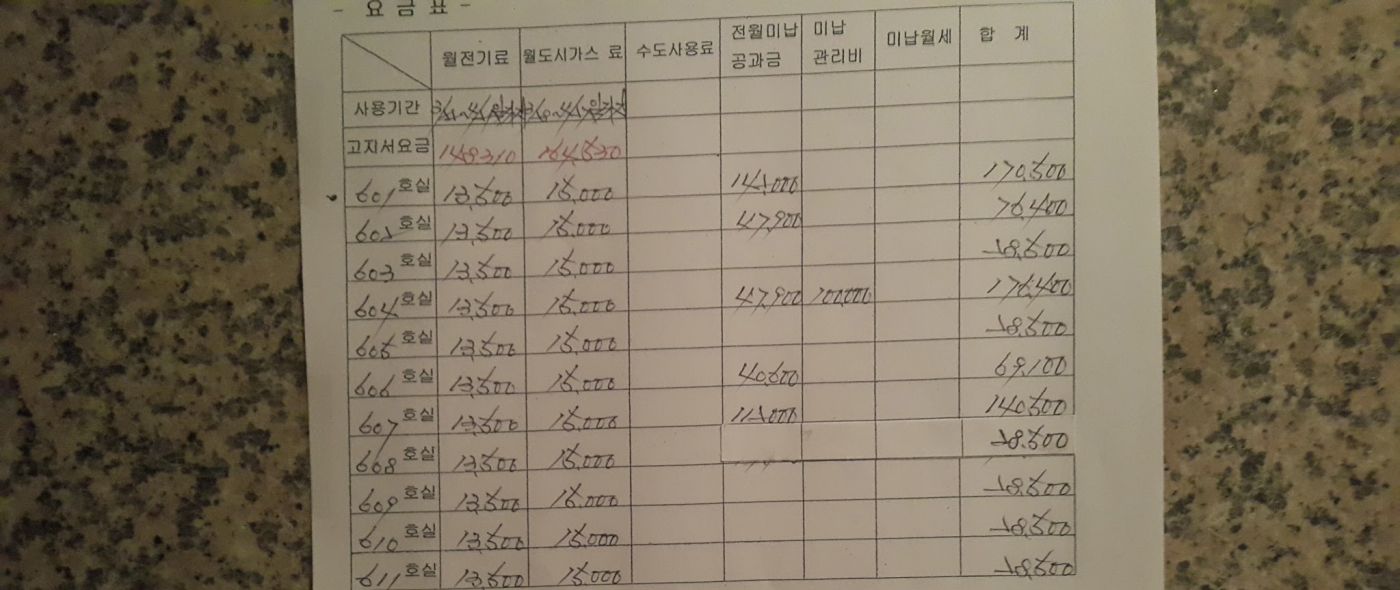 - 요 금 표 -
월전기료 월도시가스 료 수도사용료 전월미납 공과금 미납 관리비 미납월세 합 계
사용기간
고지서요금 148,310 164,530
601호실 13,500 15,000 142,000 170,500
602호실 13,500 15,000 47,900 76,400
603호실 13,500 15,000 28,500
604호실 13,500 15,000 47,900 100,000 176,400
605호실 13,500 15,000 28,500
606호실 13,500 15,000 40,600 69,100
607호실 13,500 15,000 112,000 140,500
608호실 13,500 15,000 28,500
609호실 13,500 15,000 28,500
610호실 13,500 15,000 28,500
611호실 13,500 15,000 28,500